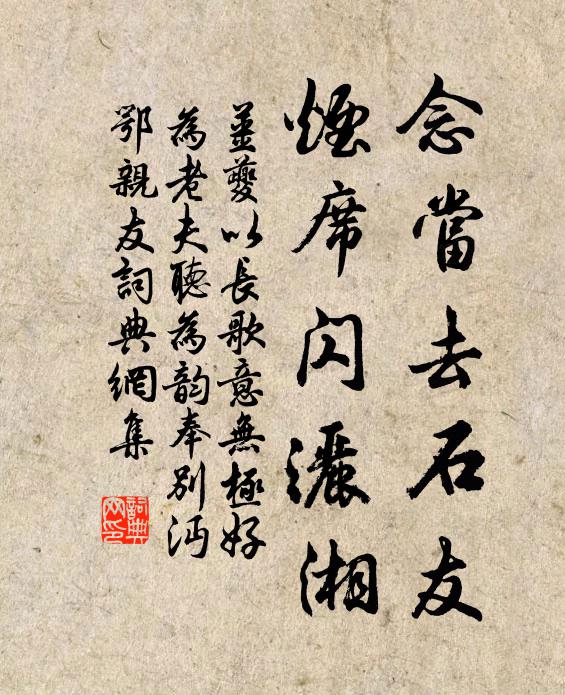 念當去石友
煙席閃瀟湘
姜夔以長歌意無極好
為老夫聽為韵奉別沔
鄂親友詞典網集
詞典
网印